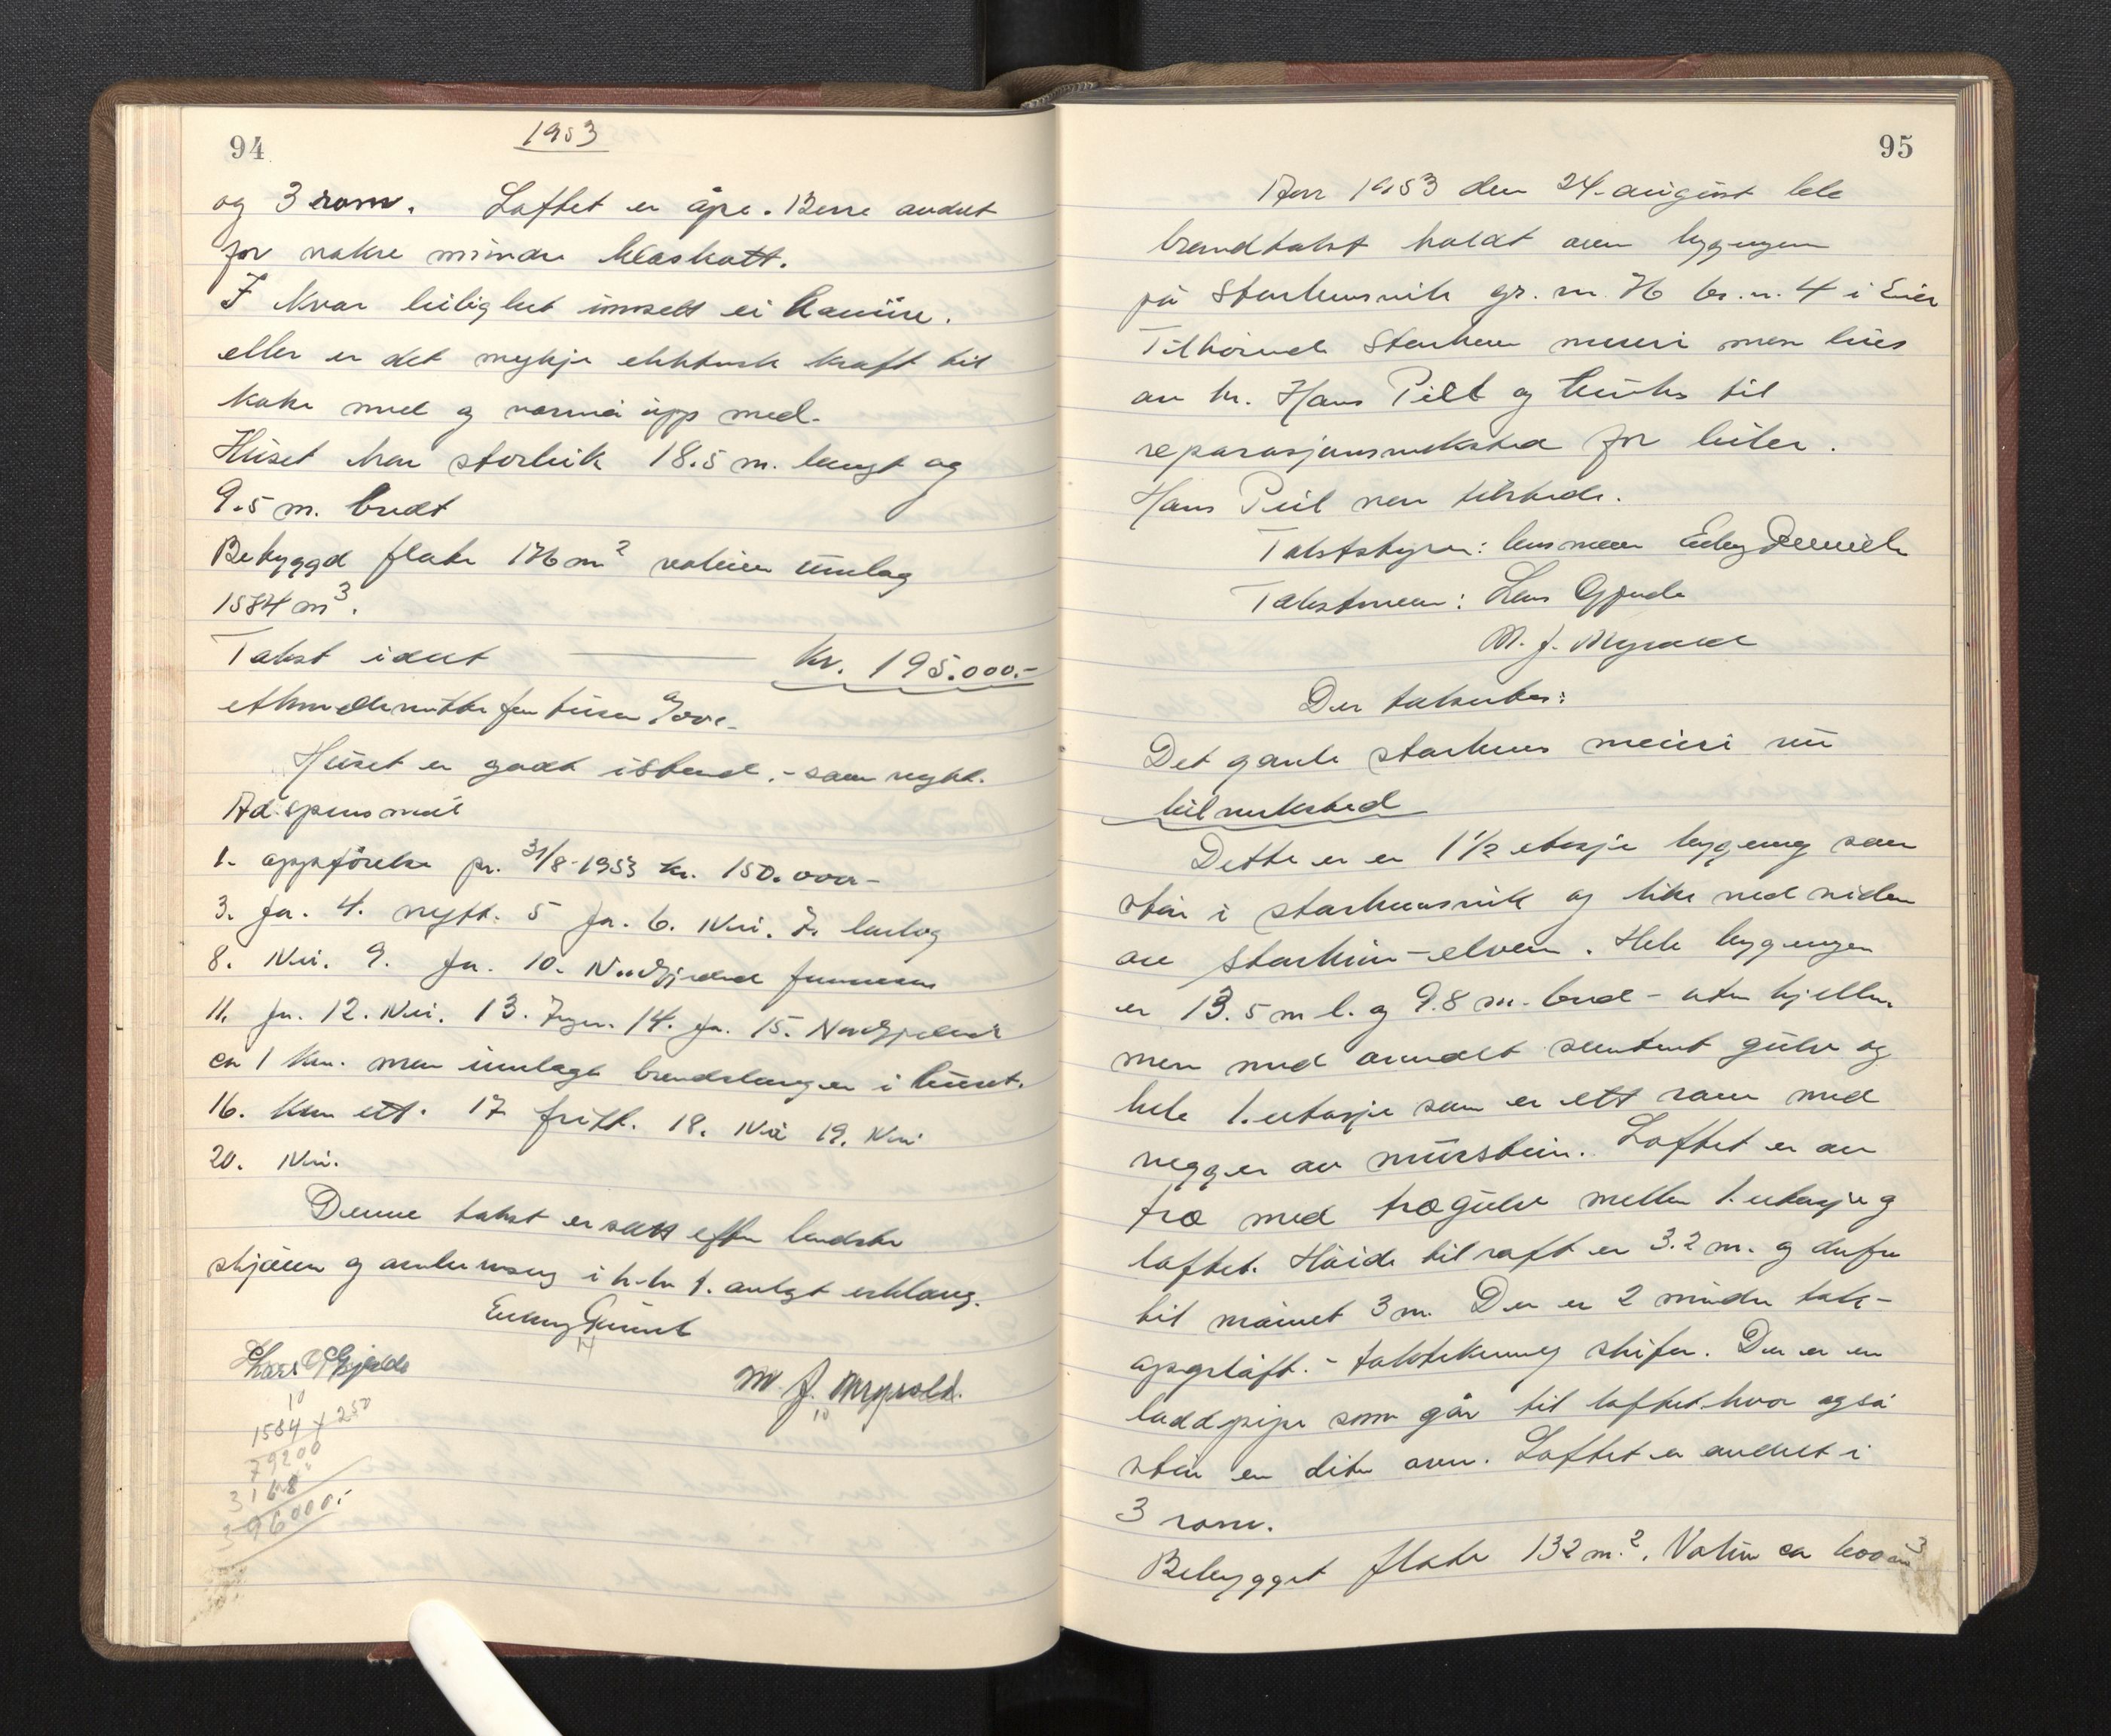 94
1953
og 3 rom. Loftet er åpe. Berre avdelt
for nokre mindre kleskott.
I kvar leilighet innsett ei kamin.
eller er det mykje elektrisk kraft til
koke med og varma upp med.
Huset har storleik 18.5 m. langt og
9.5 m. bredt
Bebyggd flate 176 m² volum umlag
1584 m³.
Takst idert kr. 195.000.-
Huset er godt istand. - som nytt.
Ad. spursmål
1. oppførelse pr. 31/8-1953 kr. 150.000-
3. Ja. 4. nytt. 5 Ja. 6. Nei. 7.
8. Nei. 9. Ja. 10. Nordfjordeid
11. Ja. 12. Nei. 13. Ingen. 14. Ja. 15. Nordfjordeid
ca 1 km. men innlagt brandslanger i huset.
16. Kun ett. 17 fritt. 18. Nei 19. Nei
20. Nei.
Denne takst er satt efter beste
skjønn og i h.t. tidl. avlagt erklæring.
Lars Gjelde
M. J. Myrold.
10
1584 x 250
79200
3168
396000.-
95
Aar 1953 den 24. august ble
brandtakst holdt over bygningen
på Starheimsvik gr. nr. 76 br. nr. 4 i Eid
Tilhørende Starheim meieri men leies
av hr. Hans Peil og brukes til
reparasjonsverksted for biler.
Hans Peil var tilstede.
Takstbestyrer: lensmann
Takstmenn: Lars Gjerde
M. J. Myrold
Der takseres:
Det gamle Starheim meieri nu
bilverksted
Dette er en 1 1/2 etasje bygning som
står i Starheimsvik og like ved siden
av Starheim-elven. Hele bygningen
er 13.5 m l. og 9.8 m. bred - uten kjeller
men med armert sement gulv og
hele 1. etasje som er ett rom med
vegger av murstein. Loftet er av
tre med tregulv mellem 1. etasje og
loftet. Høide til raft er 3.2 m. og derfra
til mønet 3 m. Der er 2 mindre tak-
opplaft. - taktekning skifer. Der er en
loddpipe som går til loftet hvor også
står en liten ovn. Loftet er avdelt i
3 rom.
Bebygget flate 132 m.². Volum ca 600 m³